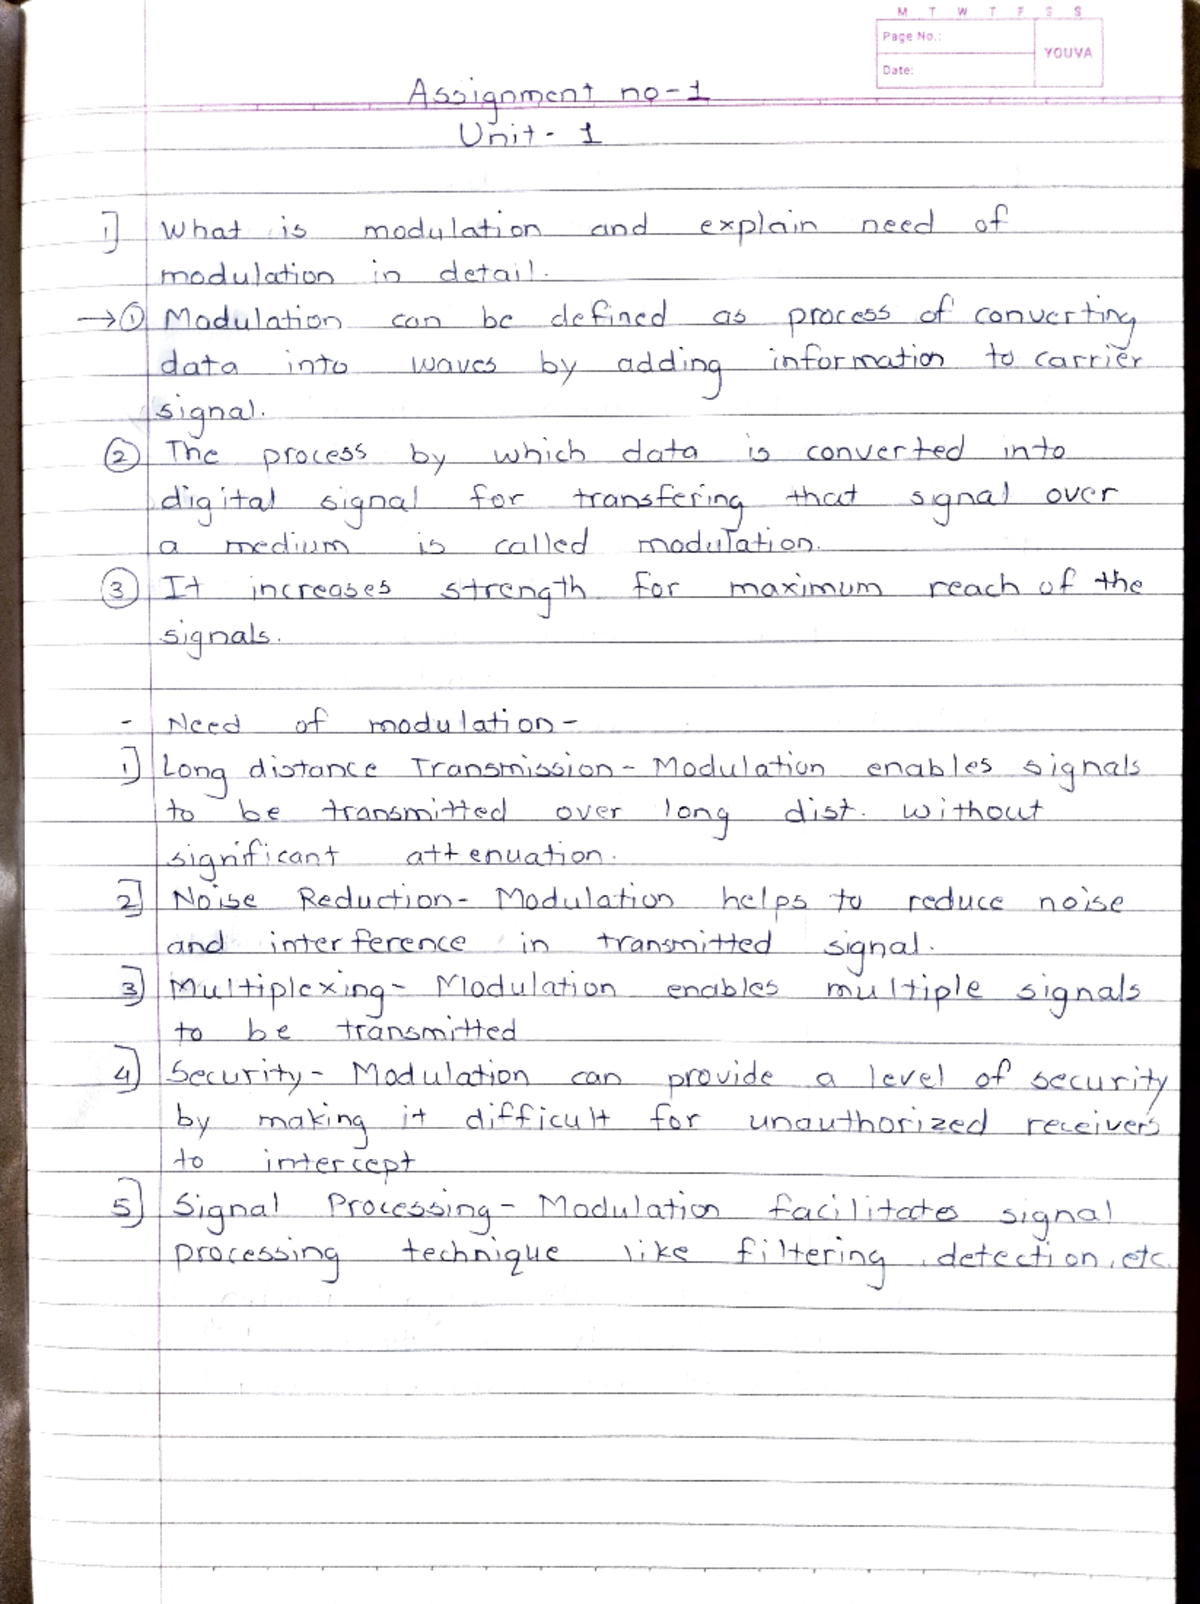 M T W T F S S
Page No.:
YOUVA
Date:
Assignment no-1
Unit- 1
1] What is modulation and explain need of
modulation in detail.
→① Modulation can be defined as process of converting
data into waves by adding information to carrier
signal.
② The process by which data is converted into
digital signal for transfering that signal over
a medium is called modulation.
③ It increases strength for maximum reach of the
signals.
- Need of modulation-
1] Long distance Transmission- Modulation enables signals
to be transmitted over long dist. without
significant attenuation.
2] Noise Reduction- Modulation helps to reduce noise
and interference in transmitted signal.
3] Multiplexing- Modulation enables multiple signals
to be transmitted
4] Security- Modulation can provide a level of security
by making it difficult for unauthorized receivers
to intercept
5] Signal Processing- Modulation facilitates signal
processing technique like filtering, detection, etc.